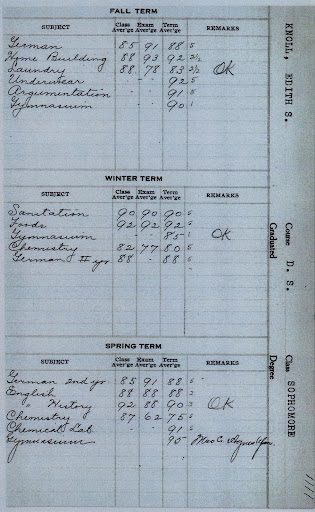 FALL TERM
SUBJECT Class Aver'ge Exam Aver'ge Term Aver'ge REMARKS
German 85 91 88 5
Home Building 88 93 92 2½
Laundry 88 78 83 2½ OK
Underwear - - 92 5
Argumentation - - 91 5
Gymnasium - - 90 1
WINTER TERM
SUBJECT Class Aver'ge Exam Aver'ge Term Aver'ge REMARKS
Sanitation 90 90 90 5
Foods 92 92 92 5
Gymnasium - - 85 1 OK
Chemistry 82 77 80 5
German II yr 88 - 88 5
SPRING TERM
SUBJECT Class Aver'ge Exam Aver'ge Term Aver'ge REMARKS
German 2nd yr 85 91 88 5
English 88 88 88
" History 92 88 90 OK
Chemistry 87 62 75
Chemical Lab. - 91
Gymnasium 90
KNOLL, EDITH S.
Course D. S.
Graduated
Class SOPHOMORE
Degree